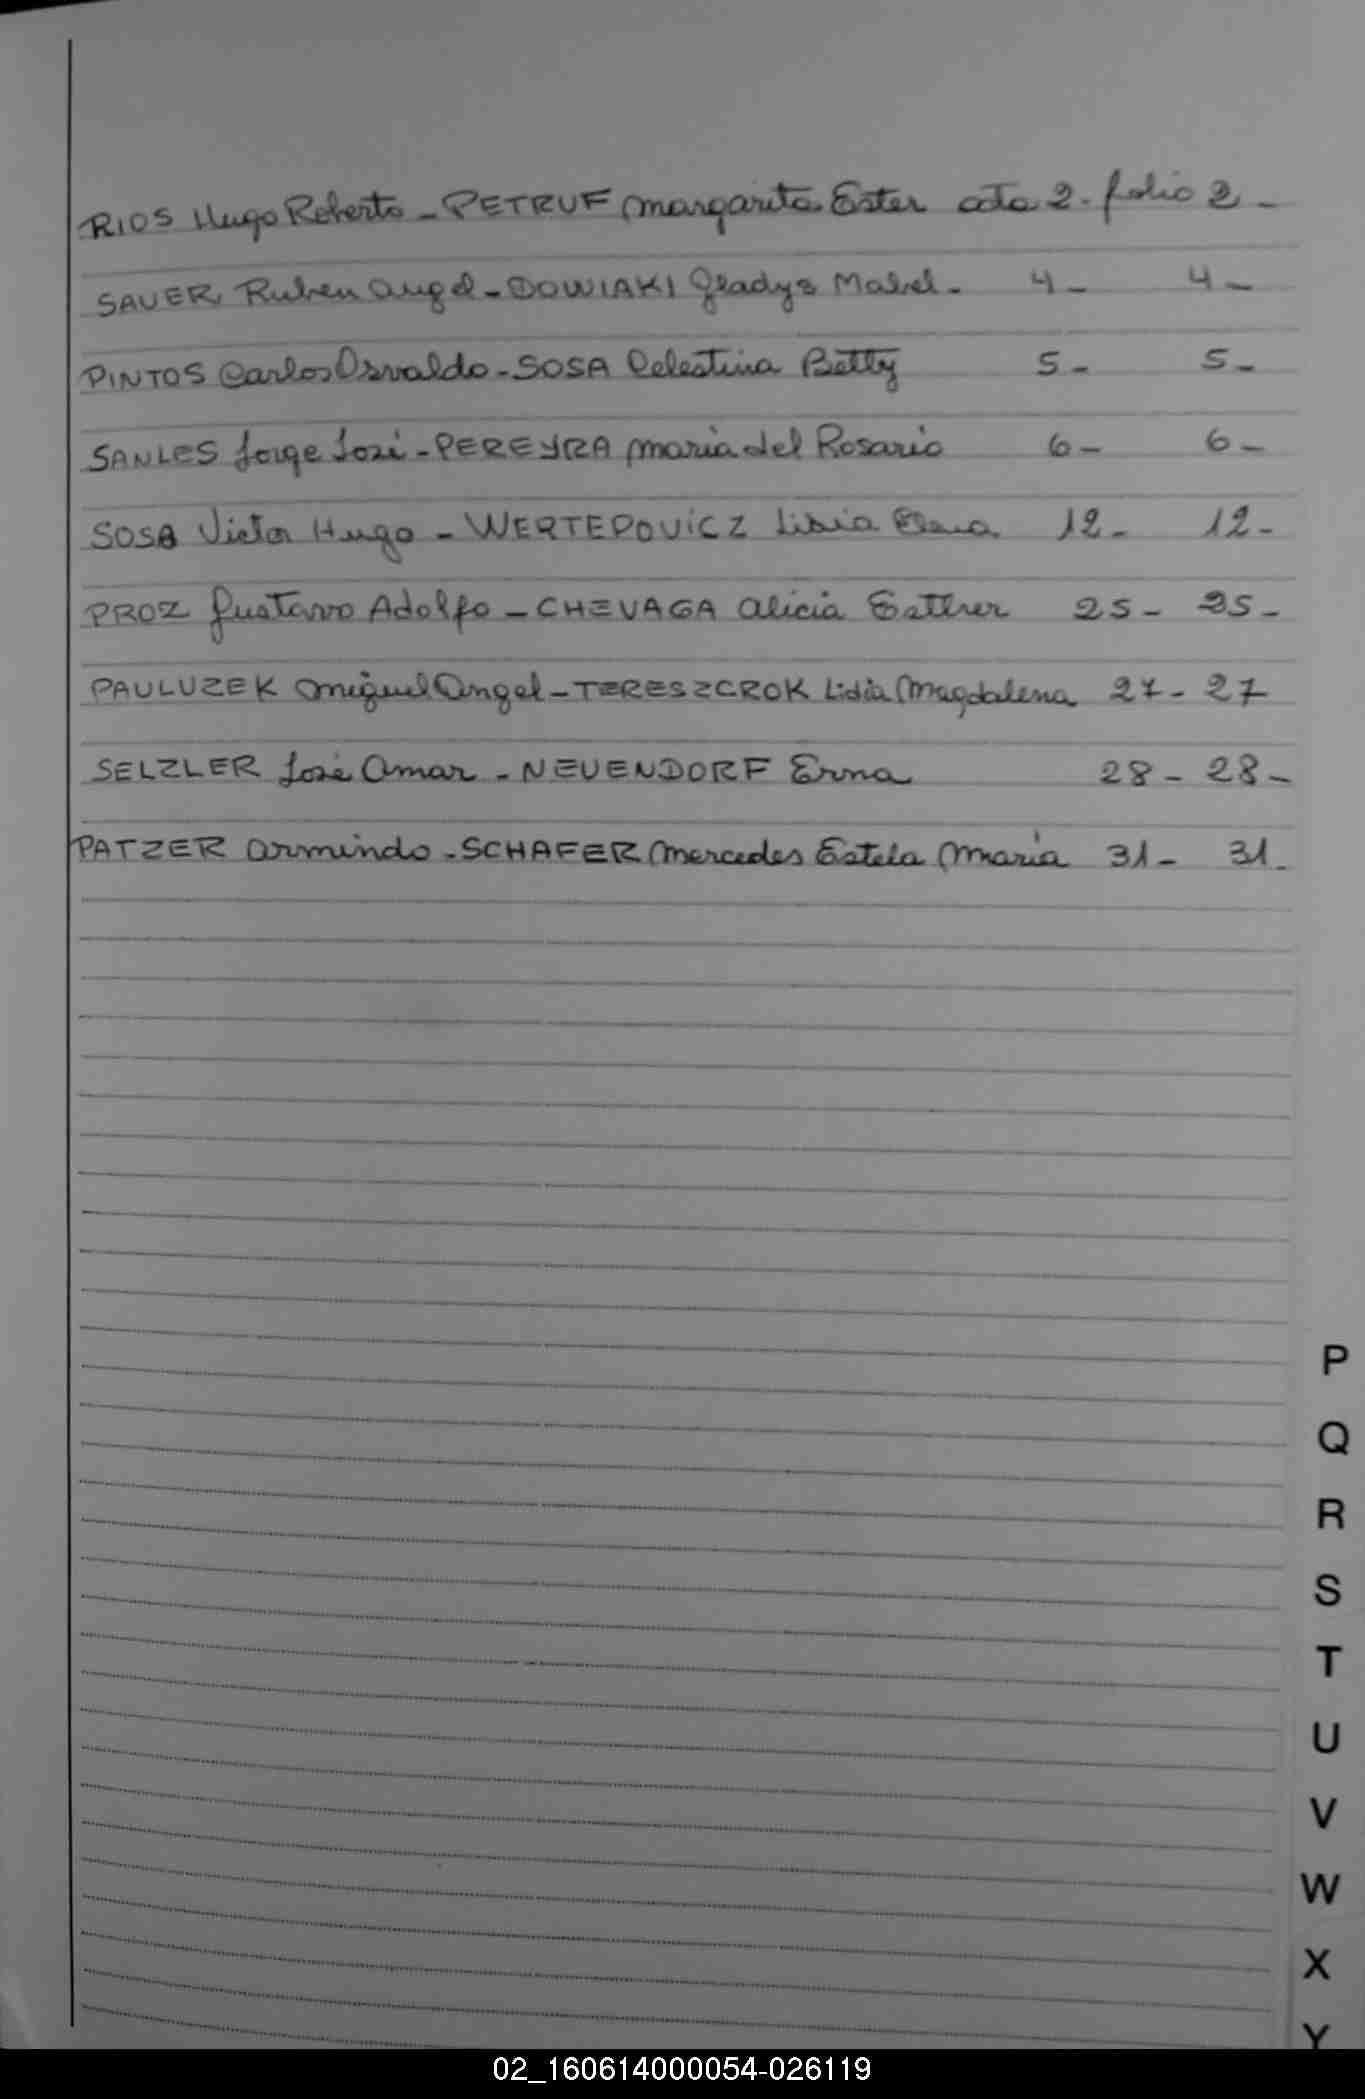 RIOS Hugo Roberto - PETRUF Margarita Ester acta 2. folio 2 -
SAUER, Ruben Angel - DOWIAKI Gladys Mabel - 4 - 4 -
PINTOS Carlos Osvaldo - SOSA Celestina Betty 5 - 5 -
SANLES Jorge José - PEREYRA Maria del Rosario 6 - 6 -
SOSA Victor Hugo - WERTEPOVICZ Elena 12 - 12 -
PROZ Gustavo Adolfo - CHEVAGA Alicia Esther 25 - 25 -
PAULUZEK Miguel Angel - TERESZCROK Lidia Magdalena 27 - 27
SELZLER José Omar - NEUENDORF Erna 28 - 28 -
PATZER Armindo - SCHAFER Mercedes Estela Maria 31 - 31 -
P
Q
R
S
T
U
V
W
X
Y
02_160614000054-026119